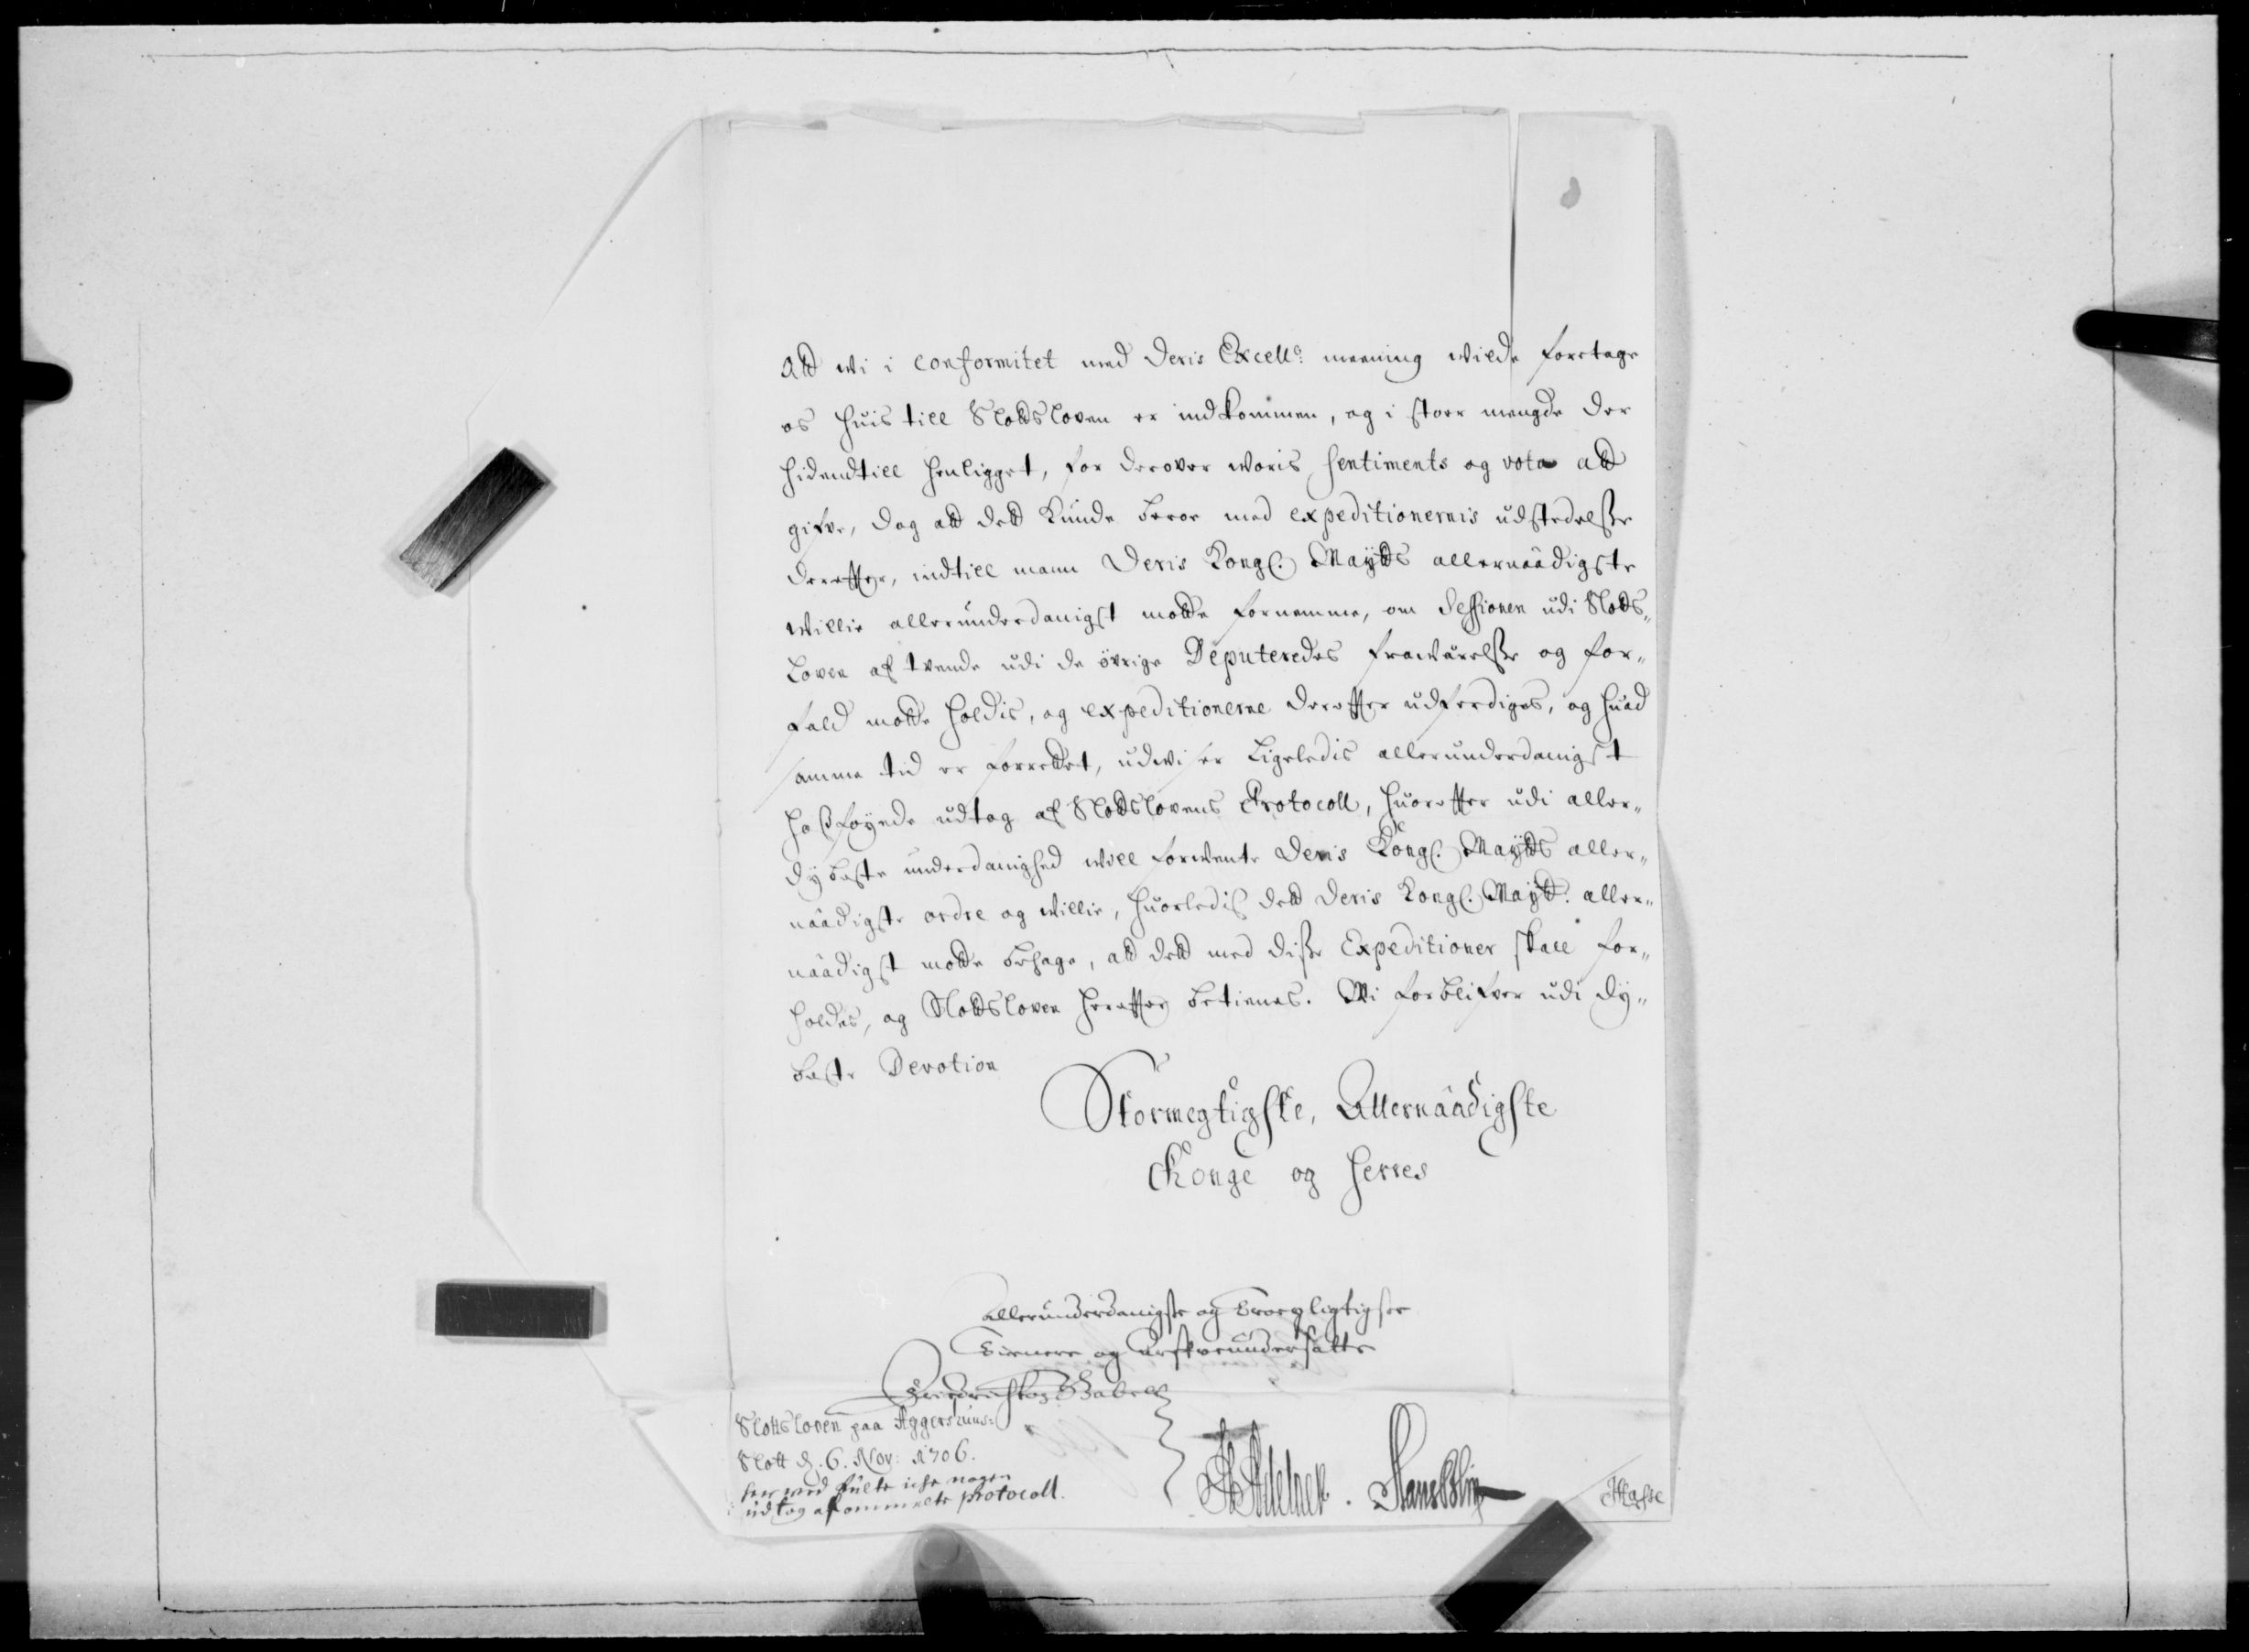 att wi i conformitet med Deris Excell: meening wilde foretage
os huis till Slottsloven er indkommen, og i stoer mengde der
hidendtill henligget, for derover woris sentiments og vota att
gifve, dog att dett kunde beroe med expeditionernis udstedelsse
dereffter, indtill mann Deris Kongl. Maytts allernäadigste
willie allerunderdanigst motte fornemme, om Sessionen udi Slotts„
Loven af tvende udi de övrige Deputeredes frawärelsse og for„
fald motte holdis, og expeditionerne dereffter udferdiges, og huad
samme tid er forrettet, udwiser Ligeledis allerunderdanigst
hosföyede udtog af Slottslovens Protocoll, huoreffter udi aller„
dybeste underdanighed will forwente Deris Kongl. Maytts aller„
näadigste ordre og willie, huorledis dett Deris Kongl. Maytt. aller„
näadigst motte behage, att dett med disse Expeditioner skall for„
holdes, og Slottsloven hereffter betienes. Wi forblifver udi dy„
beste Devotion
Stormegtigste, Allernäadigste
Konge og Herres
allerunderdanigste og troepligtigste
tienere og arfveundersätte
Slottsloven paa Aggershuus:
Slott d. 6. Nov: 1706.
her med fulte icke nogen
udtog af ommelte protocoll.